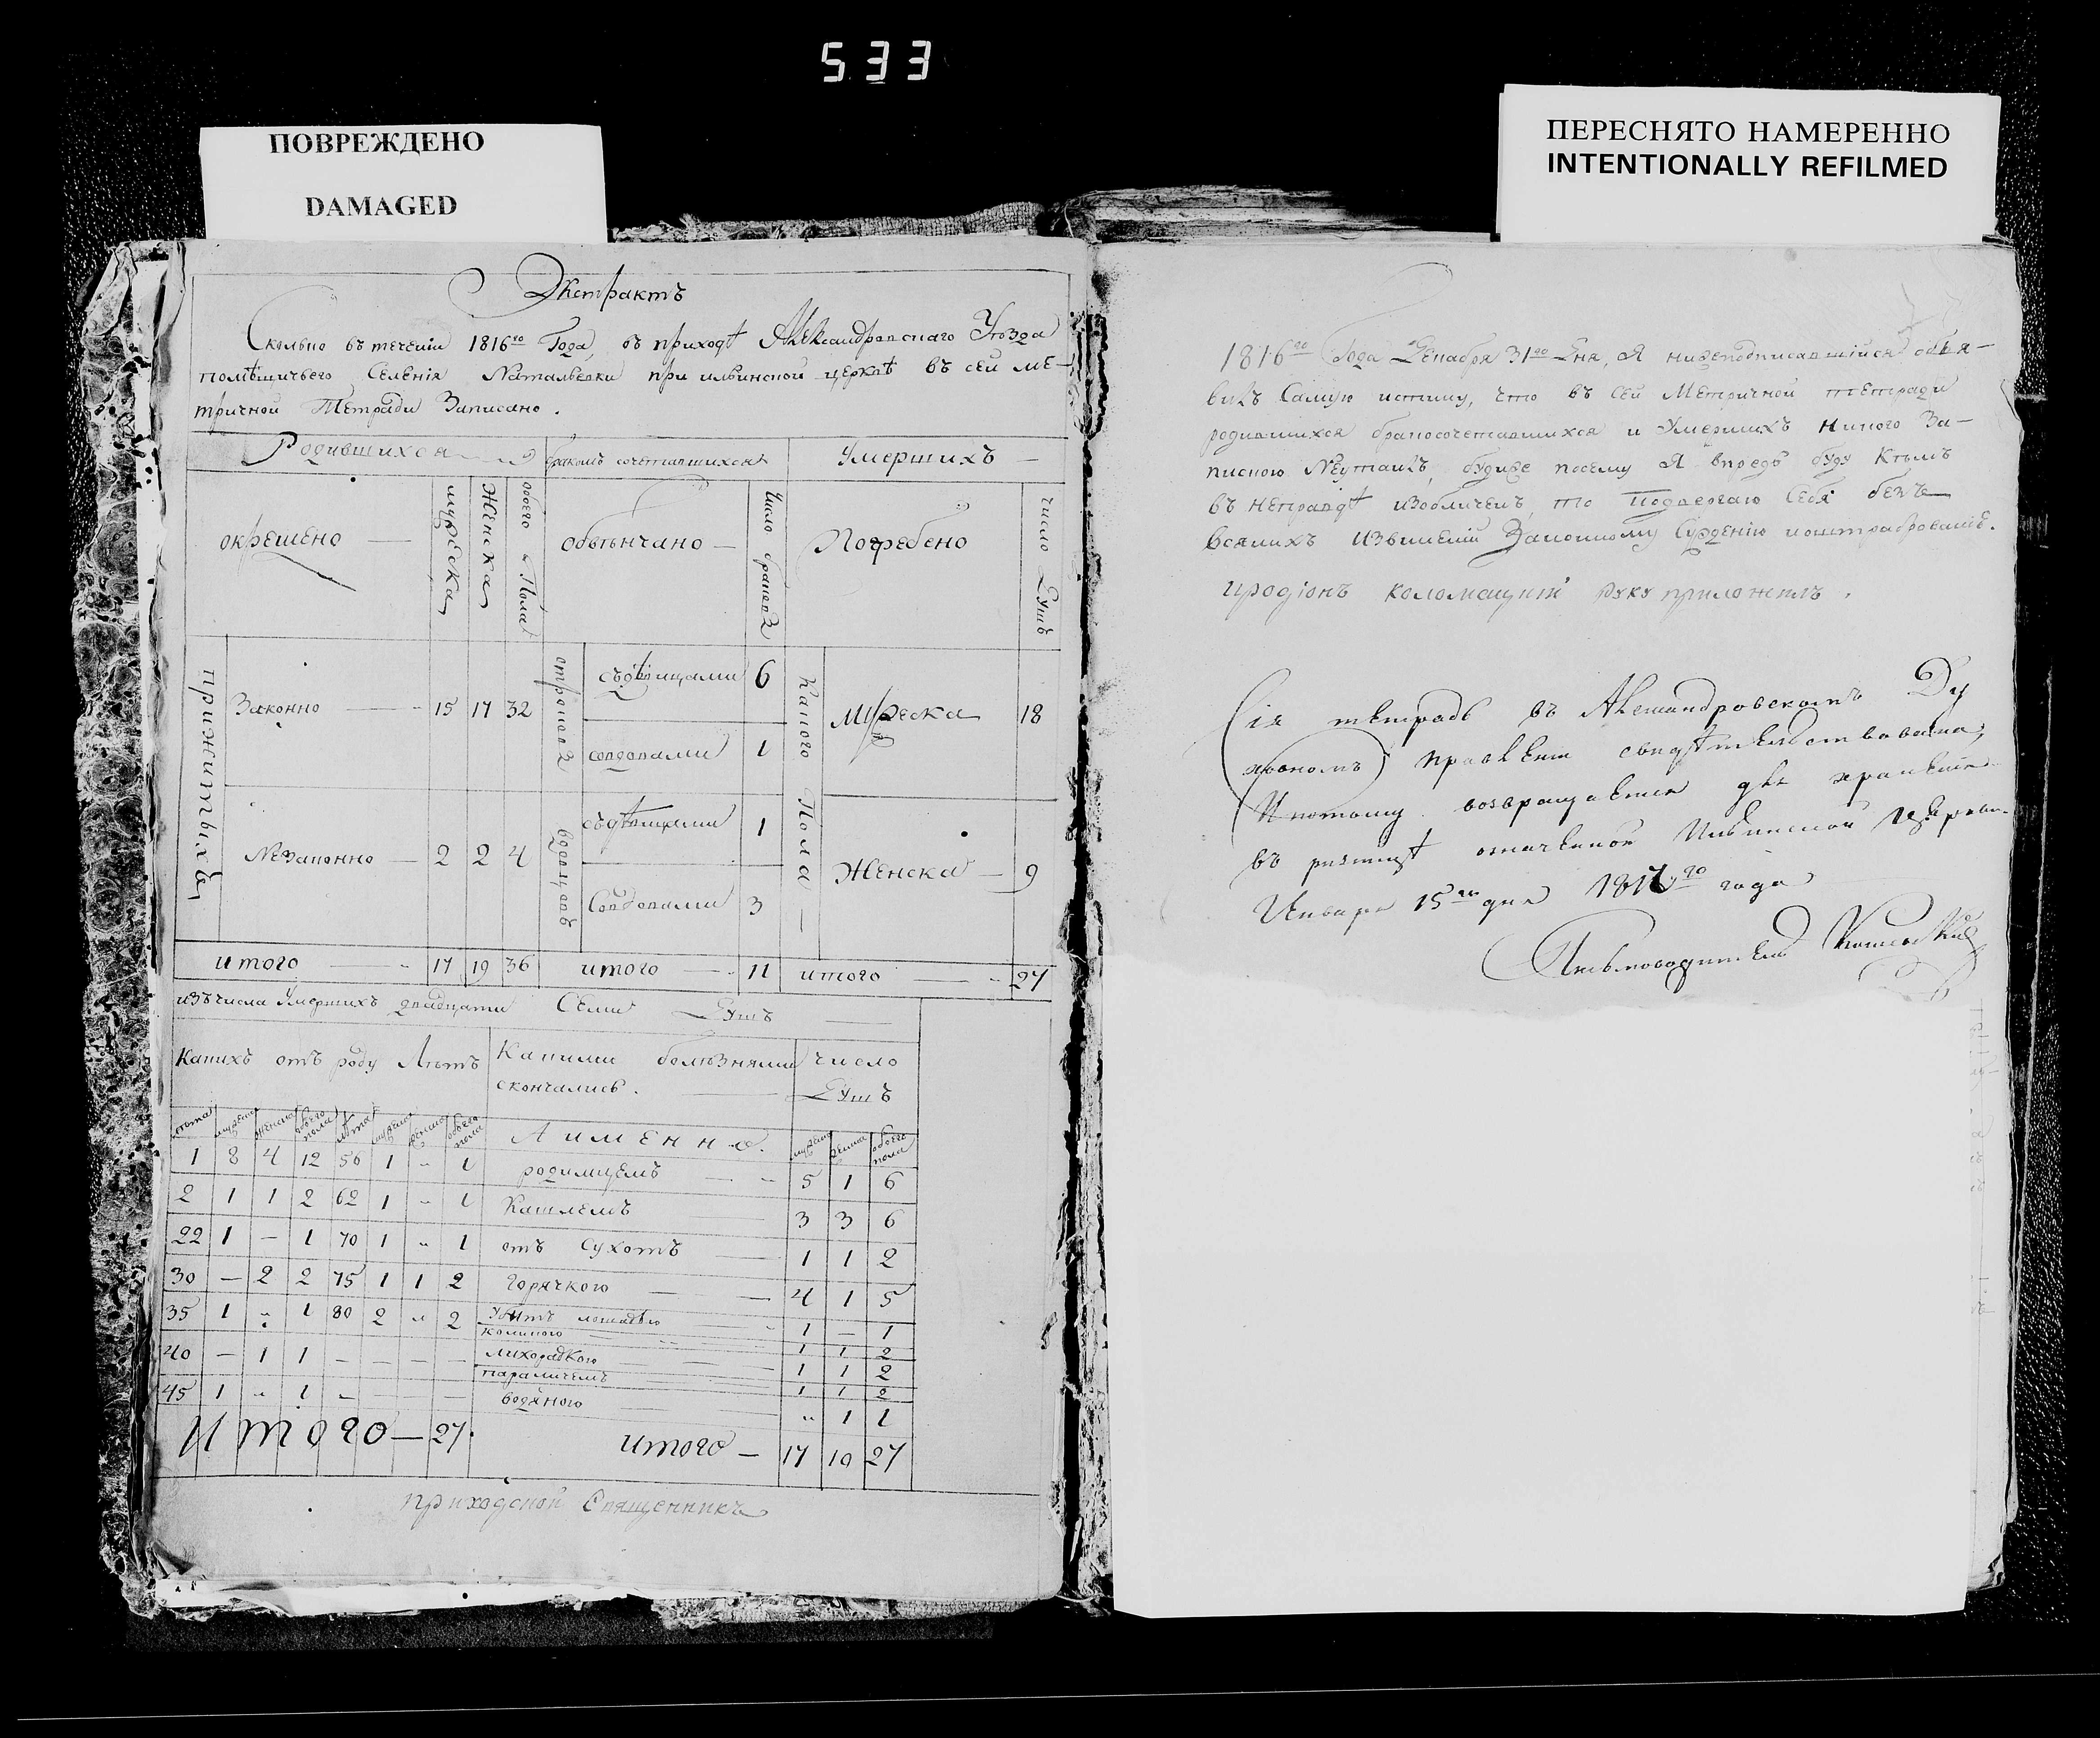 533
ПОВРЕЖДЕНО
DAMAGED
ПЕРЕСНЯТО НАМЕРЕННО
INTENTIONALLY REFILMED
Экстрактъ
Сколько въ теченіи 1816го Года, въ приходѣ Александровскаго Уѣзда
помѣщичьего Селенія Натальевки при ильинской церквѣ въ сей ме-
тричной Тетради Записано.
Родившихся бракомъ сочетавшихся Умершихъ
окрещено мужеска Женска обоего Пола обвѣнчано Число браковъ Погребено число Душъ
прижитыхъ Законно 15 17 32 отроковъ съдѣвицами 6 Какого Пола Мужеска 18
совдовами 1
Незаконно 2 2 4 вдовцовъ съдѣвицами 1 Женска 9
Совдовами 3
итого 17 19 36 итого 11 итого 27
изъ числа Умершихъ двадцати Семи Душъ
Какихъ отъ роду Лѣтъ Какими болѣзнями число
скончались. Душъ
лѣта мужеска женска обоего пола лѣта мужеска женска обоего пола Аименно. мужеска женска обоего пола
1 8 4 12 56 1 " 1 родимцемъ 5 1 6
2 1 1 2 62 1 " 1 Кашлемъ 3 3 6
22 1 — 1 70 1 " 1 отъ Сухотъ 1 1 2
30 — 2 2 75 1 1 2 Горячкою 4 1 5
35 1 " 1 80 2 " 2 Убитъ лошадью 1 — 1
коликою 1 1 2
40 — 1 1 — — — — лихорадкою 1 1 2
параличемъ 1 1 2
45 1 " 1 — — — водяною " 1 1
Итого — 27. итого — 17 10 27
приходской Священникъ
1816го Года Декабря 31го Дня, Я нижеподписавшійся объя-
вилъ Самую истину, что въ сей Метричной тетради
родившихся бракосочетавшихся и Умершихъ никого За-
пискою Неутаилъ, будиже посему Я впредь буду Кѣмъ
въ неправдѣ изобличенъ, то Подвергаю Себя безъ
всякихъ Извиненій Законному Сужденію иоштрафованію.
иродіонъ коломацкій руку приложилъ.
Сія тетрадь въ Александровскомъ Ду
ховномъ правленіи свидѣтельствована,
И потому возвращается для храненія
въ ризницѣ означенной Ильинской Церкви
Января 15го дня 1817го года
Письмоводитель